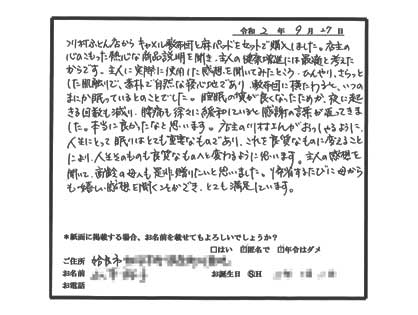 令和 2 年 9 月 27 日
川村ふとん店からキャメル敷布団と麻パッドをセットで購入しました。店主の
心のこもった熱心な商品説明を聞き、主人の健康増進には最適と考えた
からです。主人に実際に使用した感想を聞いてみたところ、ひんやり、さらっと
した肌触りで、素朴で自然な寝心地であり、敷布団に横たわると、いつの
まにか眠っているとのことでした。睡眠の質が良くなったためか、夜に起
きる回数も減り、腰痛も徐々に緩和していると感謝の言葉が返ってきま
した。本当に良かったなと思います。店主の川村さんがおっしゃるように、
人生にとって眠りはとても重要なものであり、これを良質なものに変えること
により、人生そのものも良質なものへと変わるように思います。主人の感想を
聞いて、高齢の母へも是非贈りたいと思いました。帰省するたびに母から
も嬉しい感想を聞くことができ、とても満足しています。
*紙面に掲載する場合、お名前を載せてもよろしいでしょうか?
□はい □匿名で □年令はダメ
ご住所 姶良市
お名前 お誕生日 S H
お電話